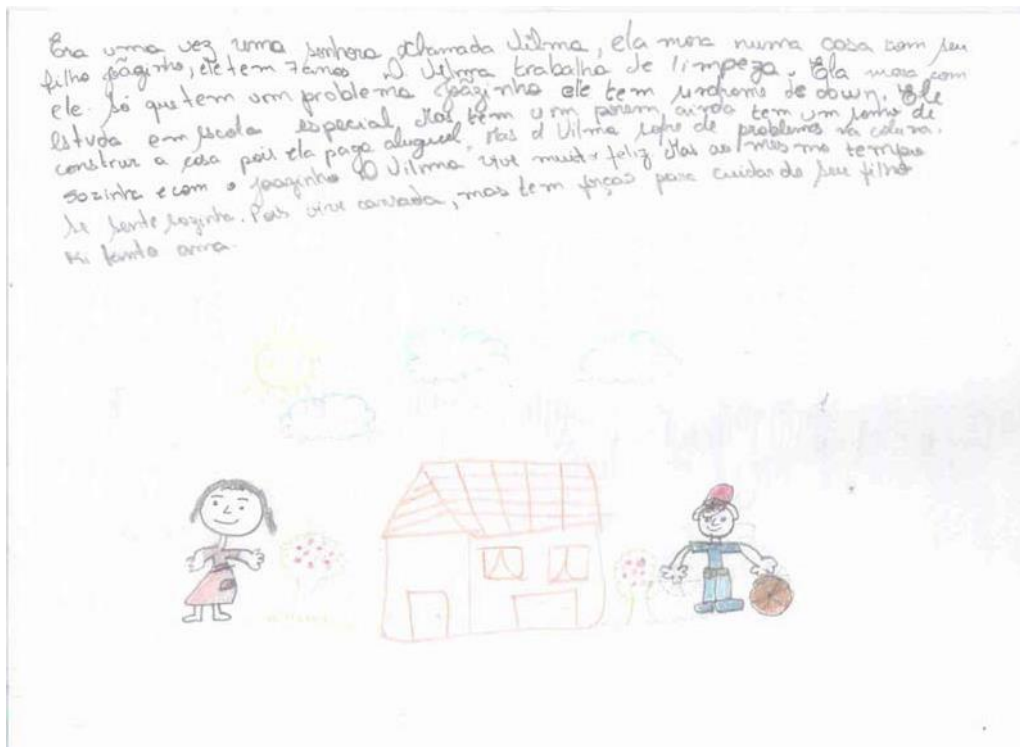 Era uma vez uma senhora chamada Vilma, ela mora numa casa com seu
filho joãzinho, ele tem 7 anos D. Vilma trabalha de limpeza. Ela mora com
ele. Só que tem um problema joãzinho ele tem sindrome de down. Ele
estuda em escola especial, Mas tem um porem ainda tem um sonho de
construir a casa pois ela paga aluguel. Mas d Vilma sofre de problemas na coluna.
sozinha e com o joãozinho D Vilma vive muito feliz Mas ao mesmo tempo
se sente sozinha. Pois vive cansada, mas tem forças para cuidar do seu filho
ki tanto ama.